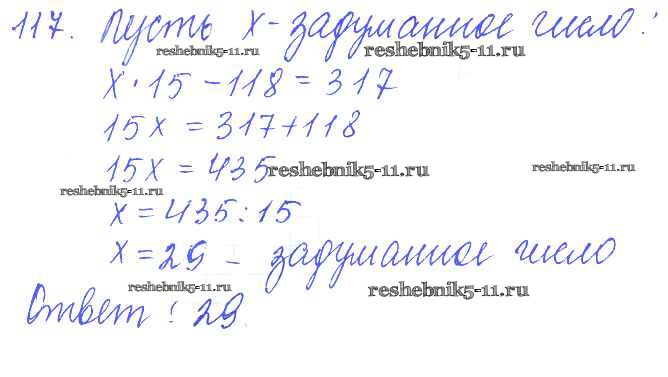 117. Пусть x - задуманное число:
reshebnik5-11.ru reshebnik5-11.ru
x · 15 - 118 = 317
15x = 317 + 118
15x = 435 reshebnik5-11.ru reshebnik5-11.ru
reshebnik5-11.ru
x = 435 : 15
x = 29 - задуманное число
reshebnik5-11.ru reshebnik5-11.ru
Ответ: 29.